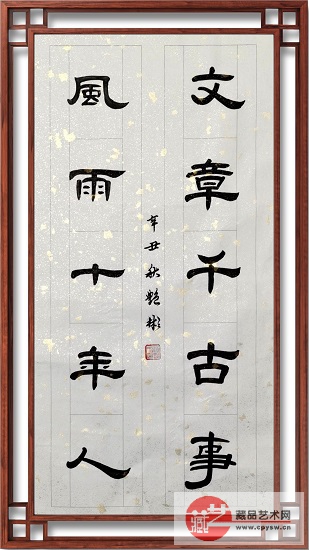 文章千古事
風雨十年人
辛丑秋艷彬
藏艺
藏品艺术网
www.cpysw.cn